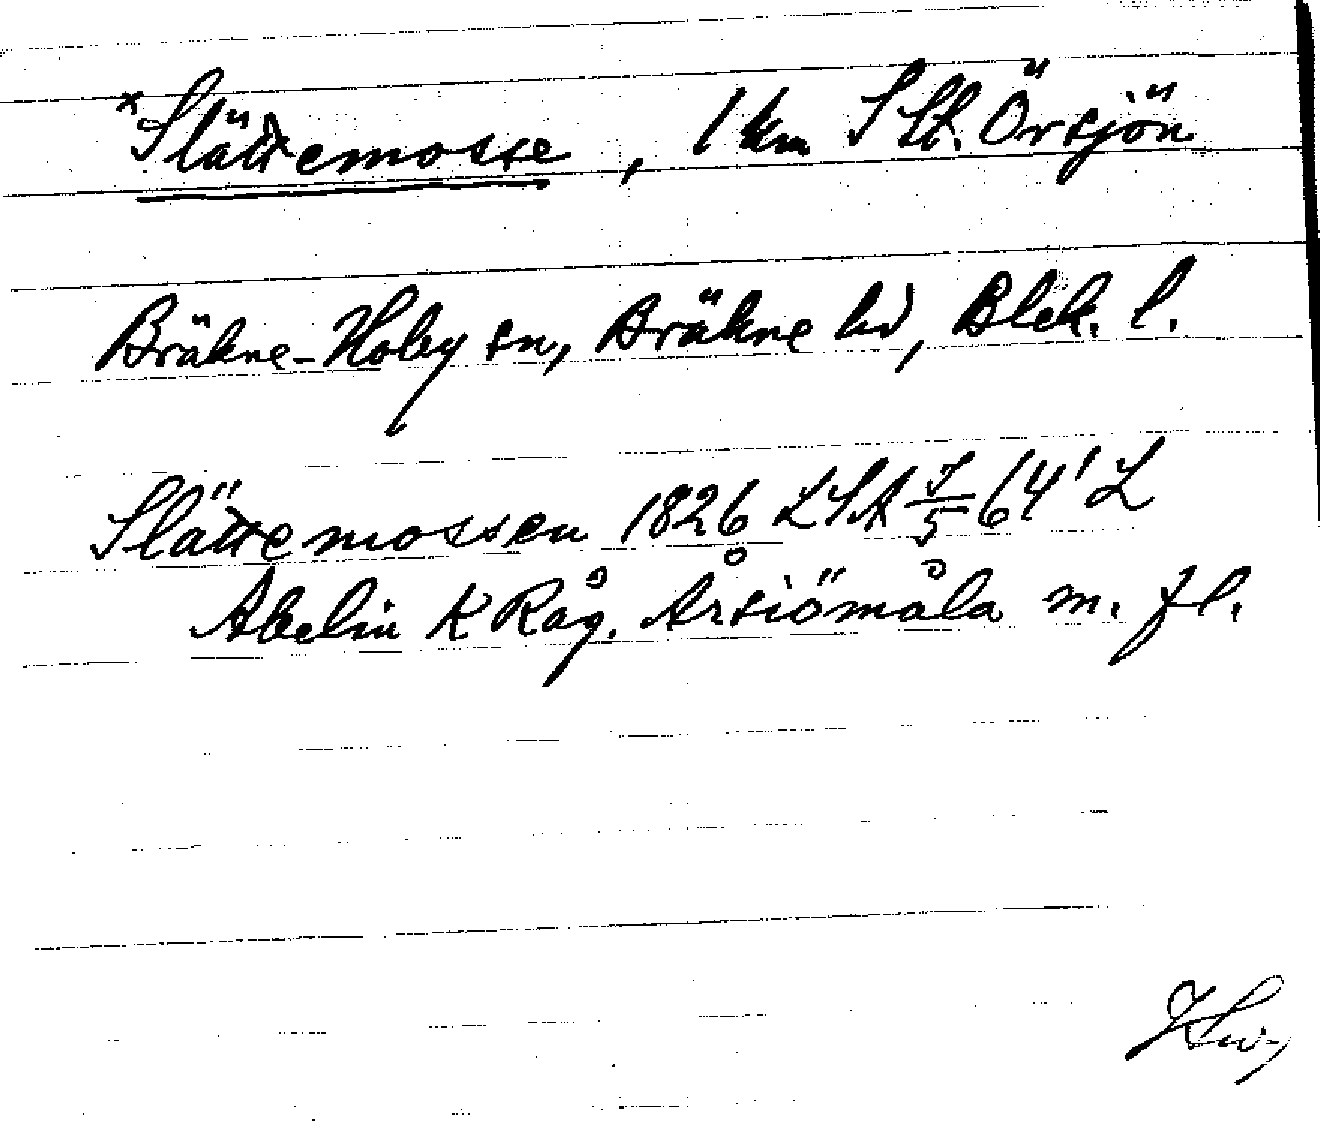 *Slättemosse, 1 km S St. Örsjön
Bräkne-Hoby sn, Bräkne hd, Blek. l.
Slättemossen 1826 LSA S/5 64' L
Abelin K Råg. Årsiömåla m. fl.